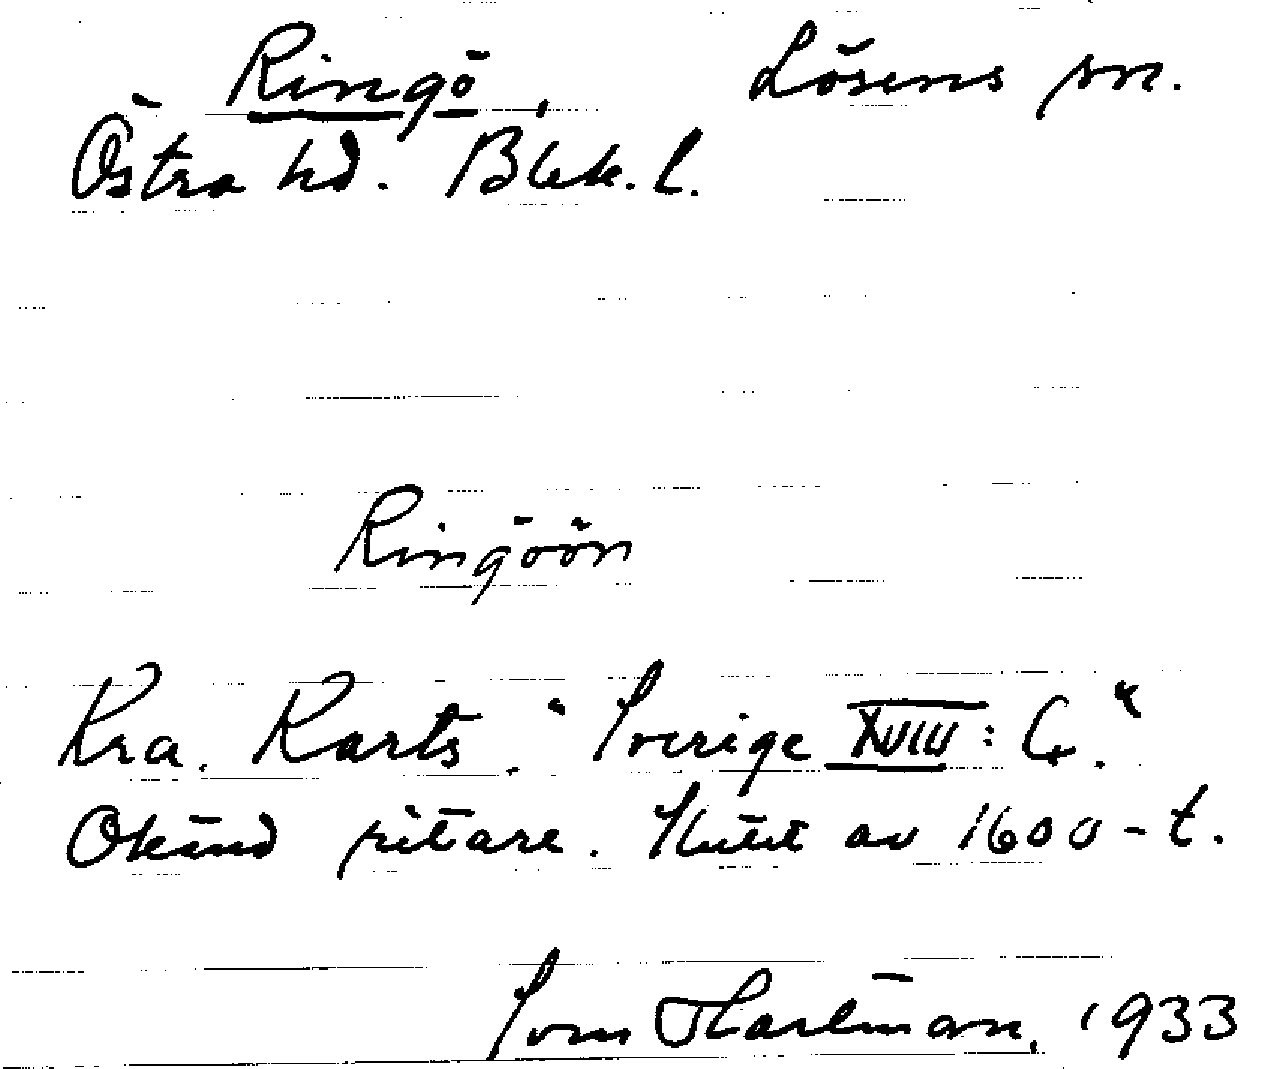 Ringö, Lösens sn.
Östra hd. Blek. l.
Ringöön
Kra. Karts. "Sverige XVIII: 6."
Okänd ritare. Slutet av 1600-t.
Sven Hartman, 1933